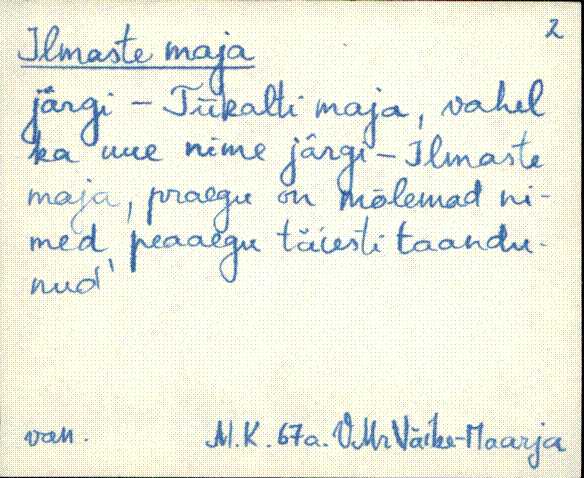 2
Ilmaste maja
järgi - Tükalti maja, vahel
ka uue nime järgi - Ilmaste
maja, praegu on mõlemad ni-
med peaaegu täiesti taandu-
nud'
van. M.K. 67a. VMr Väike-Maarja